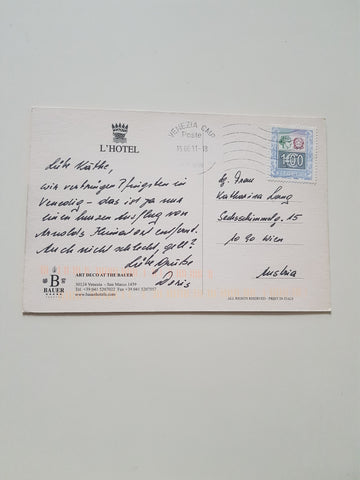 L'HOTEL
VENEZIA CMP
Poste
Liebe Käthe,
wir verbringen Pfingsten in
Venedig – das ist ja nur
einen kurzen Ausflug von
Arnolds Heimatort entfernt.
Auch nicht schlecht, gell?
Liebe Grüße
Doris
B
BAUER
ART DECO AT THE BAUER
30124 Venezia - San Marco 1459
Tel. +39 041 5207022 Fax +39 041 5207557
www.bauerhotels.com
Frau
Katharina Lang
15
1090 Wien
Austria
ALL RIGHTS RESERVED - PRINTED IN ITALY